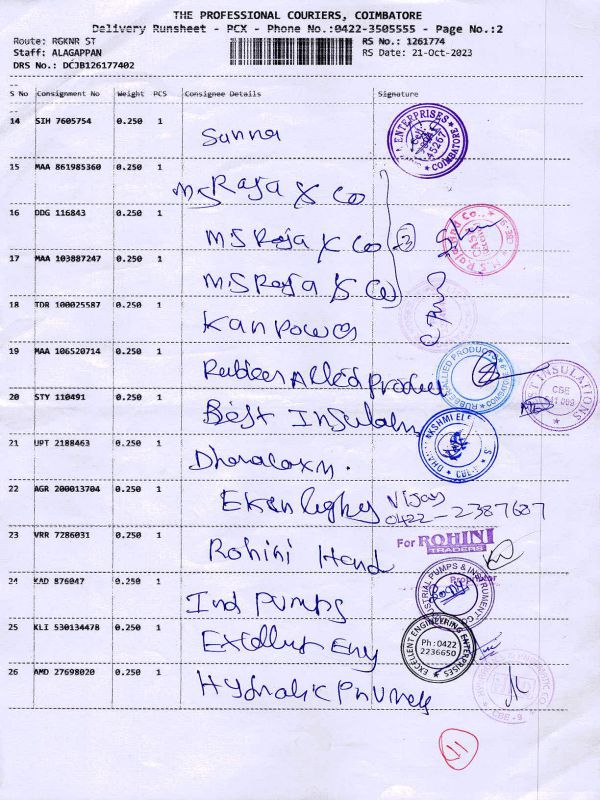 THE PROFESSIONAL COURIERS, COIMBATORE
Delivery Runsheet - PCX - Phone No.:0422-3505555 - Page No.:2
Route: RGKNR ST
RS No.: 1261774
Staff: ALAGAPPAN
RS Date: 21-Oct-2023
DRS No.: DCJB126177402
S No Consignment No Weight PCS Consignee Details Signature
14 SIH 7605754 0.250 1
Sunna
ENTERPRISES
COIMBATORE
15 MAA 861985360 0.250 1
M.S Raja & Co
16 DDG 116843 0.250 1
M.S Raja & Co 3
17 MAA 103887247 0.250 1
M.S Raja & Co
18 TDR 100025587 0.250 1
Kanpower
19 MAA 106520714 0.250 1
Rubber Allied Product
RUBBER ALLIED PRODUCTS
20 STY 110491 0.250 1
Best Insulation
INSULATIONS
CBE
641 009
21 UPT 2188463 0.250 1
Dhanalaxm.
22 AGR 200013704 0.250 1
Vijay
0422-2387687
23 VRR 7286031 0.250 1
Rohini Hand
For ROHINI
TRADERS
Proprietor
24 KAD 876047 0.250 1
Ind Pumps
25 KLI 530134478 0.250 1
Excellent Eng
EXCELLENT ENGINEERING ENTERPRISES
Ph: 0422
2236650
26 AMD 27698020 0.250 1
CBE - 9
11